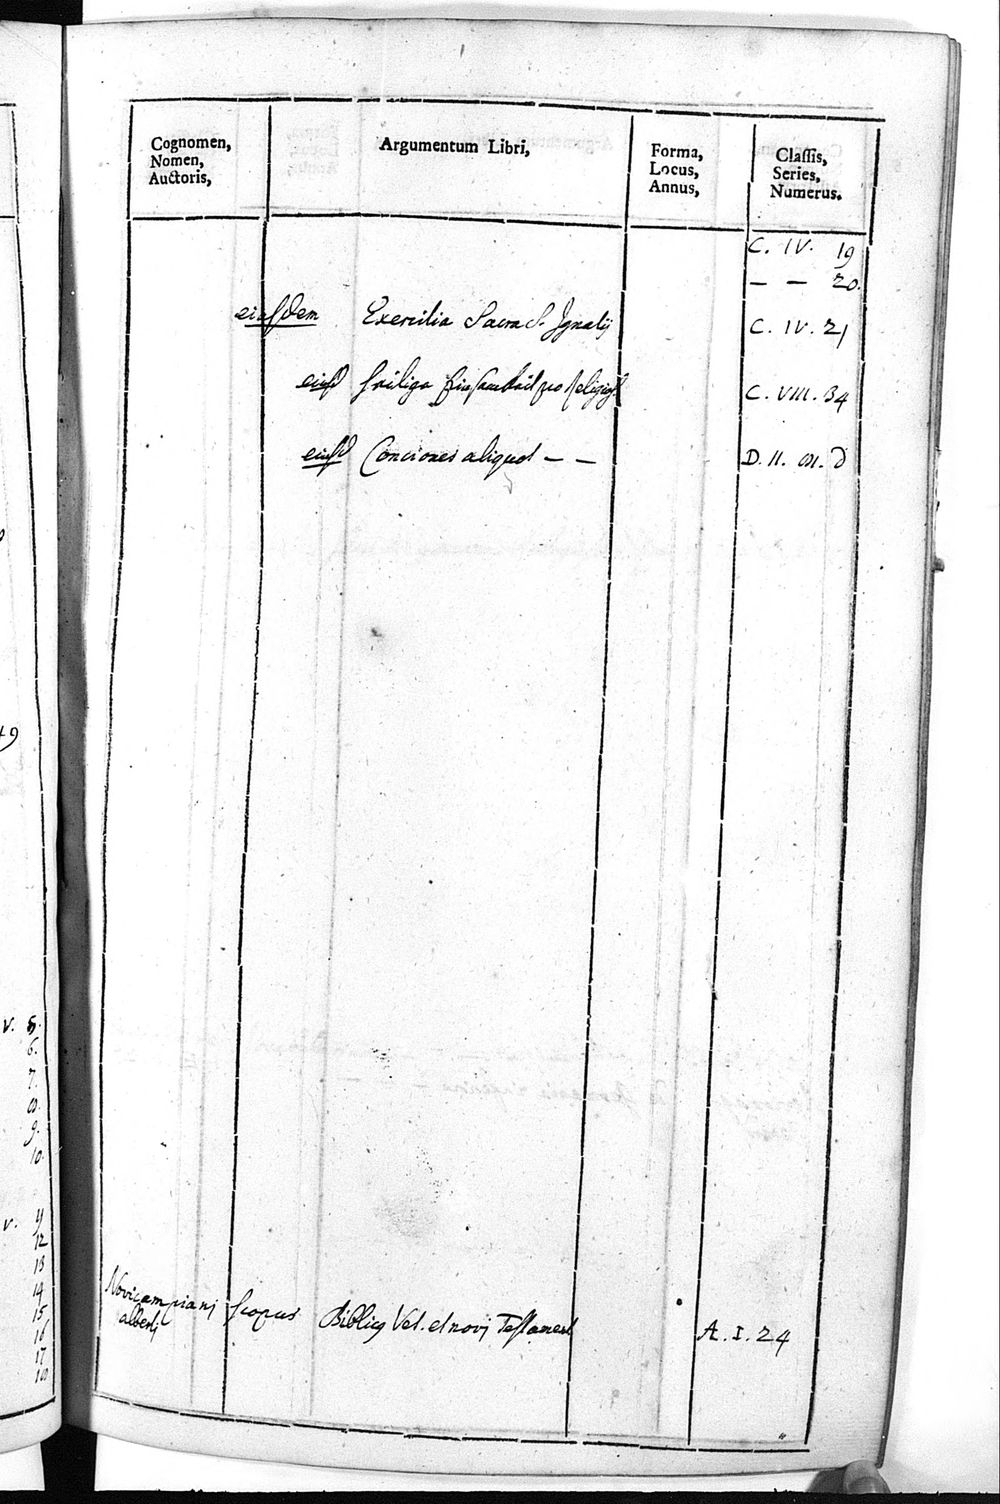 Cognomen,
Nomen,
Auctoris,
Argumentum Libri,
Forma,
Locus,
Annus,
Classis,
Series,
Numerus.
C. IV. 19
— — 20.
eiusdem Exercitia Sacra S. Ignatij C. IV. 21
eiusd C. VIII. 34
eiusd Conciones aliquot — — D. II.
Novicampianj Scopus Biblicg Vet. et novj Testament A. I. 24
albertj
49
V. 5.
6.
7.
8.
9.
10.
V. 11
12
13
14
15
16
17
18